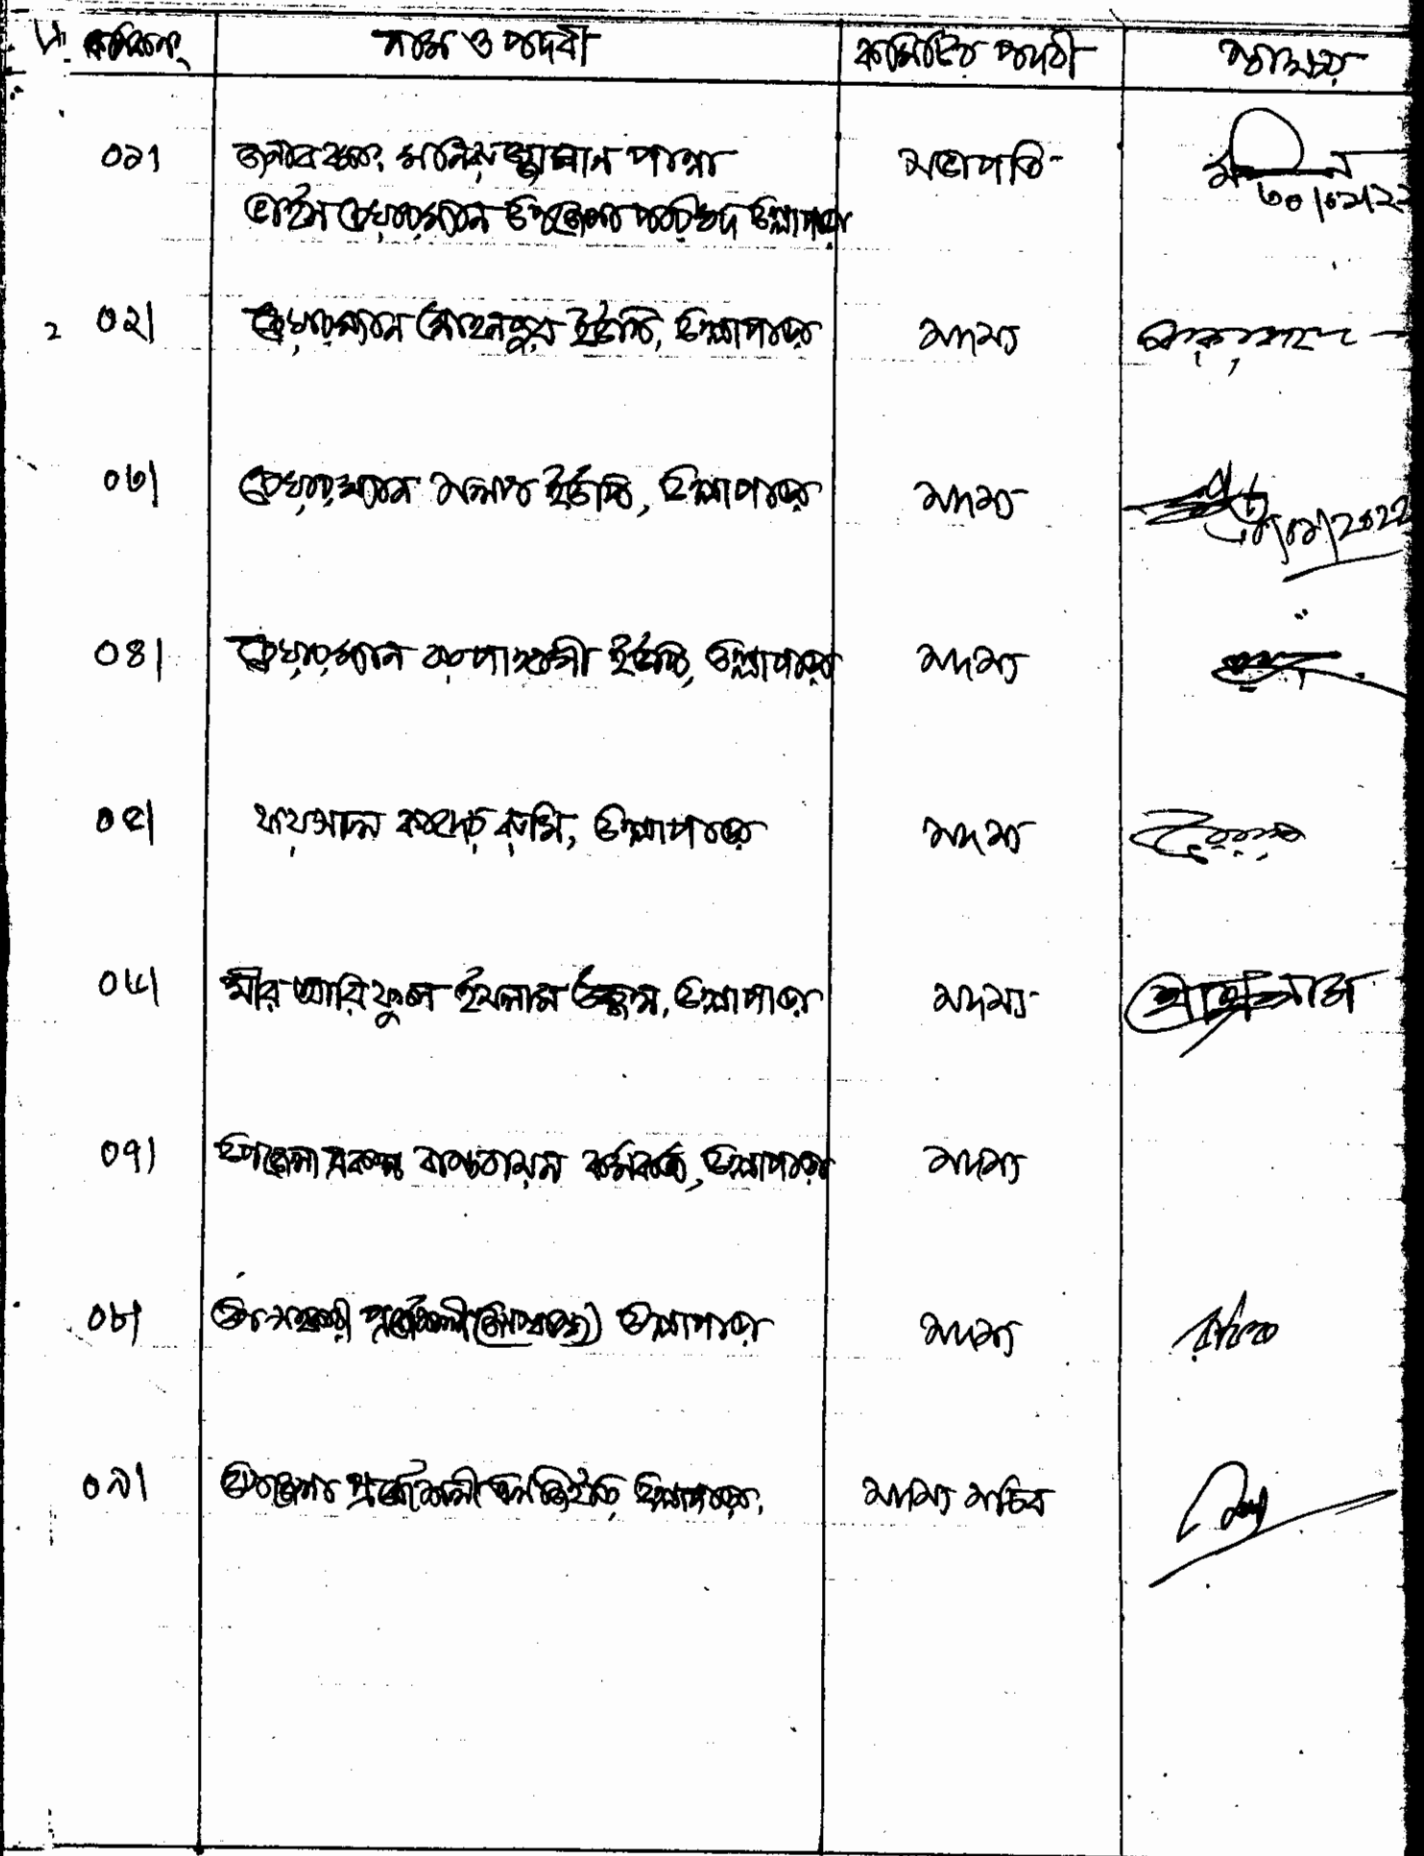 ক্রমিক নং নাম ও পদবী কমিটির পদবী স্বাক্ষর
০১। জনাব মোঃ মনিরুজ্জামান পান্না সভাপতি
ভাইস চেয়ারম্যান উপজেলা পরিষদ উল্লাপাড়া
০২। চেয়ারম্যান মোহনপুর ইউপি, উল্লাপাড়া সদস্য
০৩। চেয়ারম্যান সলপ ইউপি, উল্লাপাড়া সদস্য
০৪। চেয়ারম্যান ইউপি, উল্লাপাড়া সদস্য
০৫। ফয়সাল কাদের রুমি, উল্লাপাড়া সদস্য
০৬। মীর আরিফুল ইসলাম উজ্জল, উল্লাপাড়া সদস্য
০৭। উপজেলা প্রকল্প বাস্তবায়ন কর্মকর্তা, উল্লাপাড়া সদস্য
০৮। উপ-সহকারী প্রকৌশলী (জনস্বাস্থ্য) উল্লাপাড়া সদস্য
০৯। উপজেলা প্রকৌশলী এলজিইডি উল্লাপাড়া। সদস্য সচিব